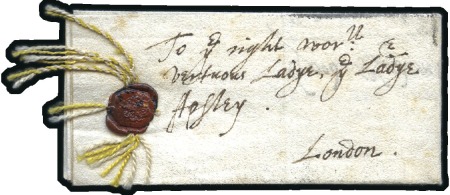 To yͤ right worˡˡ: &
vertuous Ladye, yͤ Ladye
Apsley.
London.